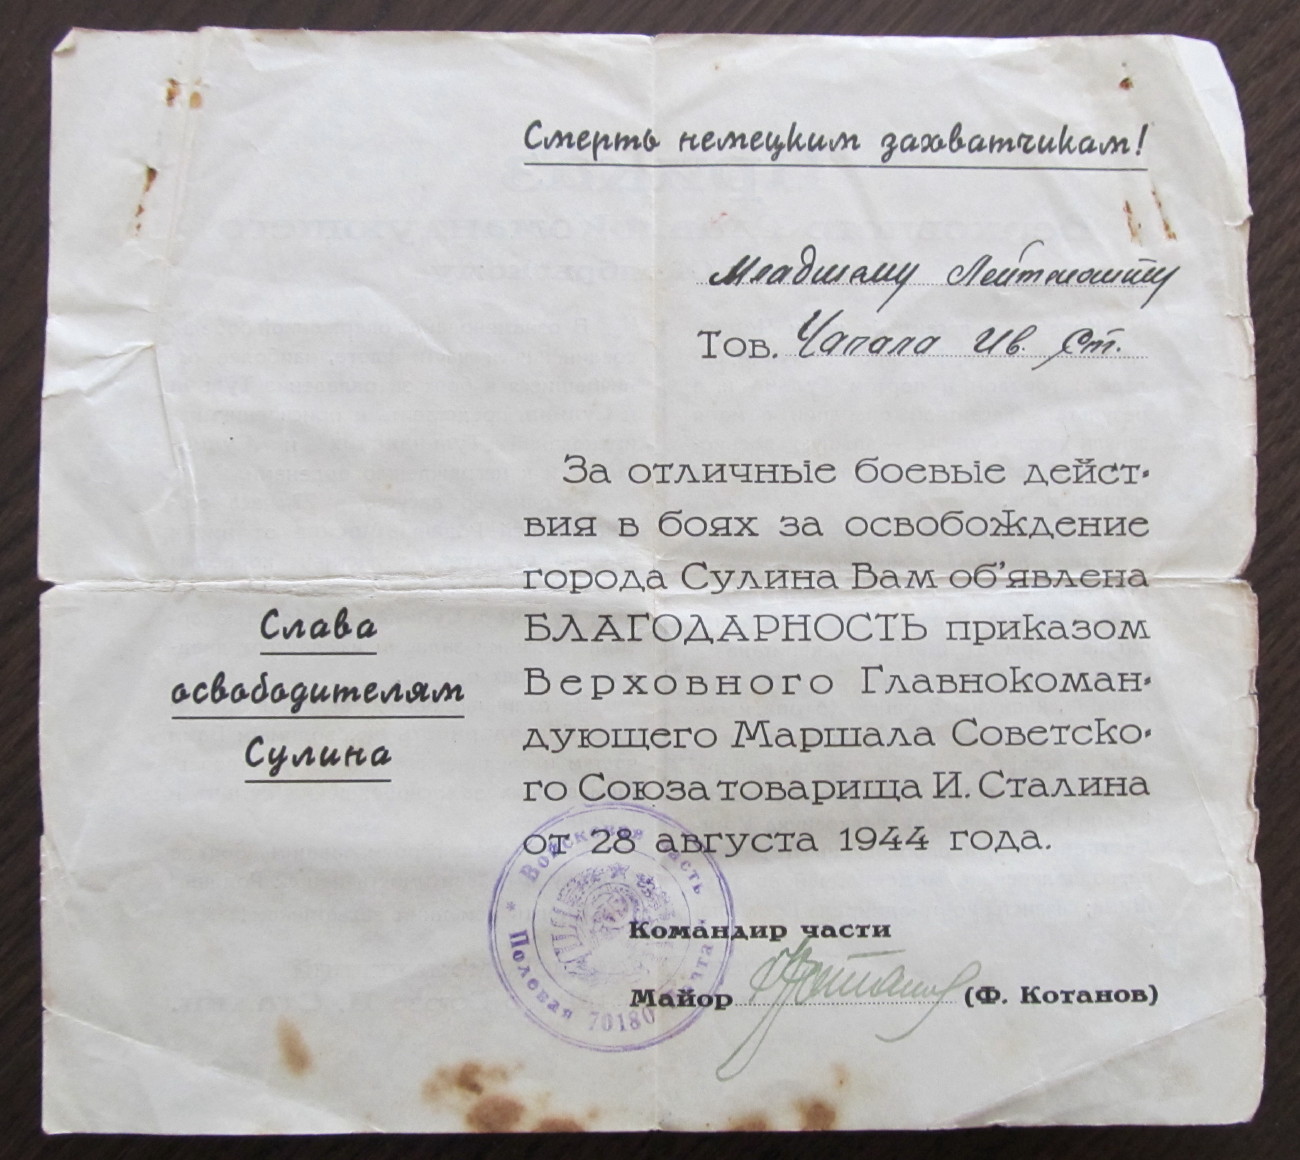 Смерть немецким захватчикам!
Младшему Лейтенанту
Тов. Чапала Ив. Ст.
За отличные боевые дейст-
вия в боях за освобождение
города Сулина Вам об'явлена
БЛАГОДАРНОСТЬ приказом
Верховного Главнокоман-
дующего Маршала Советско-
го Союза товарища И. Сталина
от 28 августа 1944 года.
Слава
освободителям
Сулина
Войсковая часть
Полевая почта
70180
Командир части
Майор (Ф. Котанов)